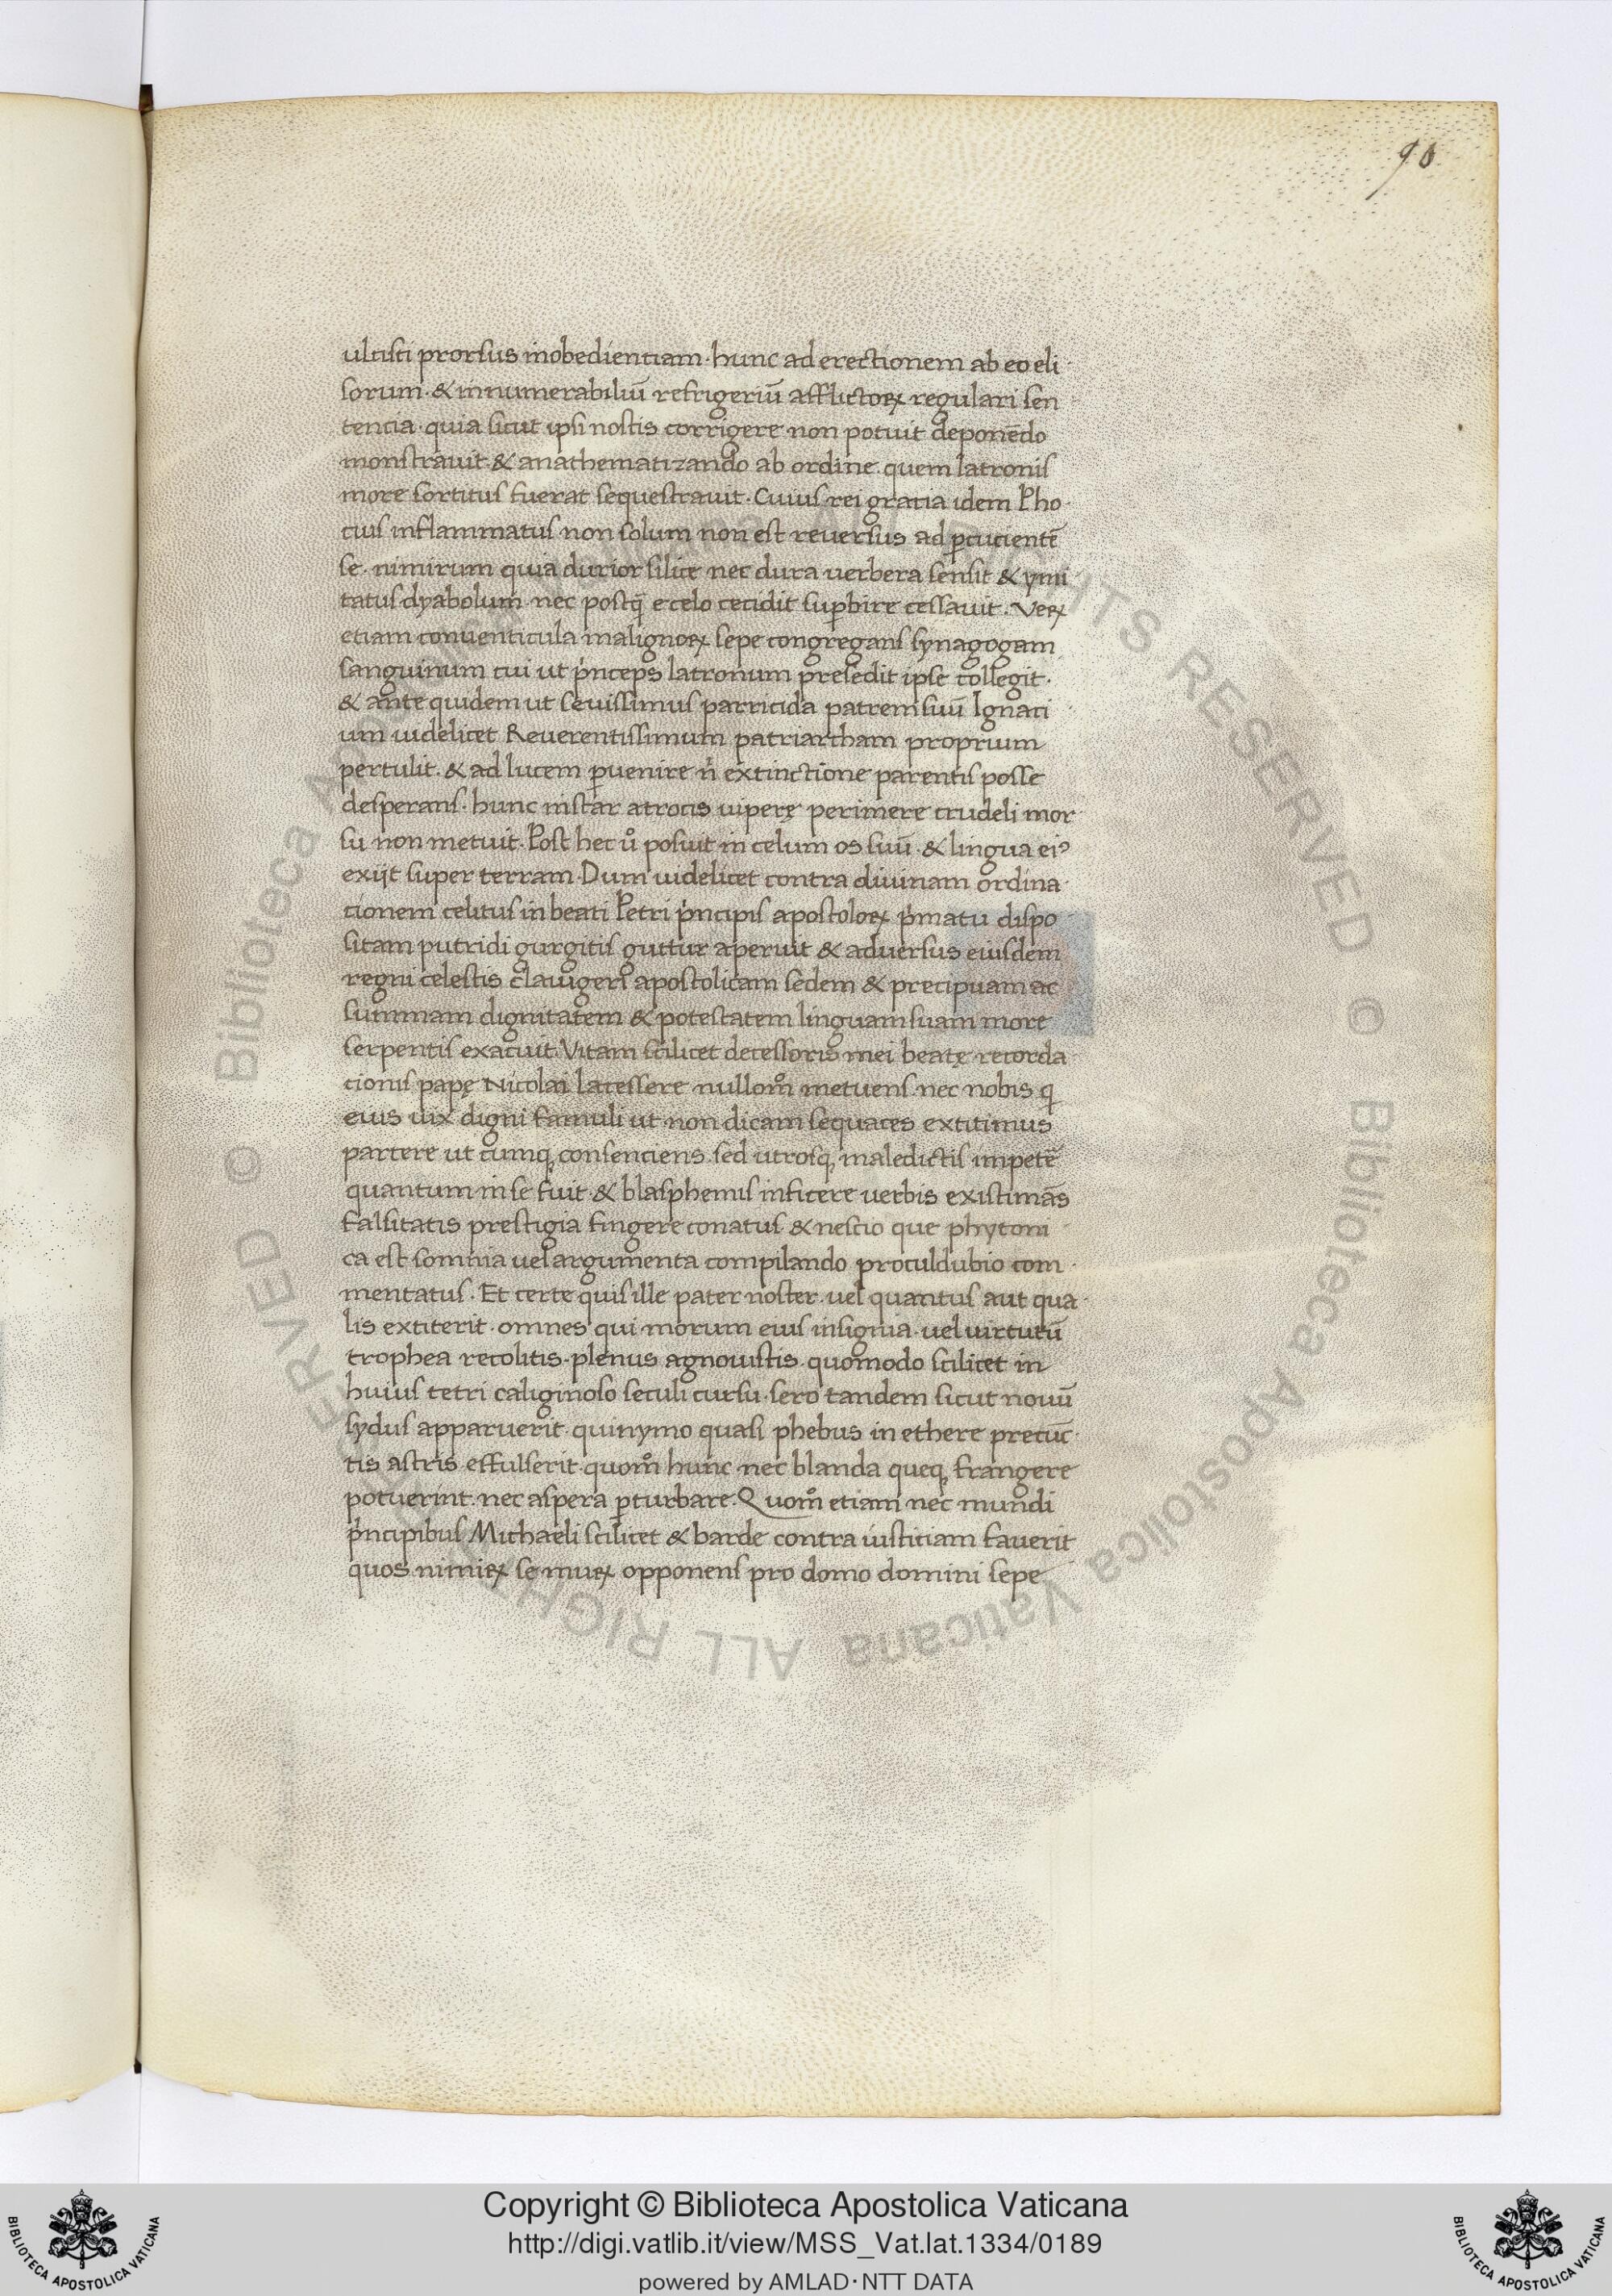 90
ultisci prorsus inobedientiam · hunc ad erectionem ab eo eli
sorum · & innumerabiliū refrigeriū afflictoꝝ regulari sen
tencia · quia sicut ipsi nostis corrigere non potuit deponēdo
monstravit · & anathematizando ab ordine quem latronis
more sortitus fuerat sequestravit · Cuius rei gratia idem Pho
cius inflammatus non solum non est reversus ad ꝑcucientē
se · nimirum quia durior silice nec dura verbera sensit & ymi
tatus dyabolum nec postq̄ e celo cecidit suꝑbire cessavit · Veꝝ
etiam conventicula malignoꝝ sepe congregans synagogam
sanguinum cui ut p̓nceps latronum presedit ipse collegit ·
& ante quidem ut sevissimus parricida patrem suū Ignaci
um videlicet Reverentissimum patriarcham proprium
pertulit · & ad lucem ꝑvenire n̓ extinctione parentis posse
desperans · hunc instar atrocis viperę perimere crudeli mor
su non metuit · Post hec u̓ posuit in celum os suū · & lingua eiꝰ
exijt super terram · Dum videlicet contra divinam ordina
cionem celitus in beati Petri p̓ncipis apostoloꝝ p̓matu dispo
sitam putridi gurgitis guttur aperuit & adversus eiusdem
regni celestis clavigeri apostolicam sedem & precipuam ac
summam dignitatem & potestatem linguam suam more
serpentis exacuit · Vitam scilicet decessoris mei beatę recorda
cionis papę Nicolai lacessere nullom̊ metuens · nec nobis q̓
eius vix digni famuli ut non dicam sequaces extitimus
parcere ut cumqꝫ consenciens · sed utrosqꝫ maledictis impetē
quantum in se fuit · & blasphemis inficere verbis existimās
falsitatis prestigia fingere conatus & nescio que phytoni
ca est somnia vel argumenta compilando proculdubio com
mentatus · Et certe quis ille pater noster · vel quantus aut qua
lis extiterit · omnes qui morum eius insignia · vel virtutū
trophea recolitis · plenus agnovistis · quomodo scilicet in
huius tetri caliginoso seculi cursu · sero tandem sicut novū
sydus apparuerit · quinymo quasi phebus in ethere precūc
tis astris effulserit · quom̊ hunc nec blanda queqꝫ frangere
potuerint · nec aspera ꝑturbare · Quom̊ etiam nec mundi
p̓ncipibus Michaeli scilicet & barde contra iusticiam faverit
quos nimiꝝ se muꝝ opponens pro domo domini sepe
© Biblioteca Apostolica Vaticana ALL RIGHTS RESERVED © Biblioteca Apostolica Vaticana ALL RIGHTS RESERVED
Copyright © Biblioteca Apostolica Vaticana
http://digi.vatlib.it/view/MSS_Vat.lat.1334/0189
powered by AMLAD·NTT DATA
BIBLIOTECA APOSTOLICA VATICANA
BIBLIOTECA APOSTOLICA VATICANA